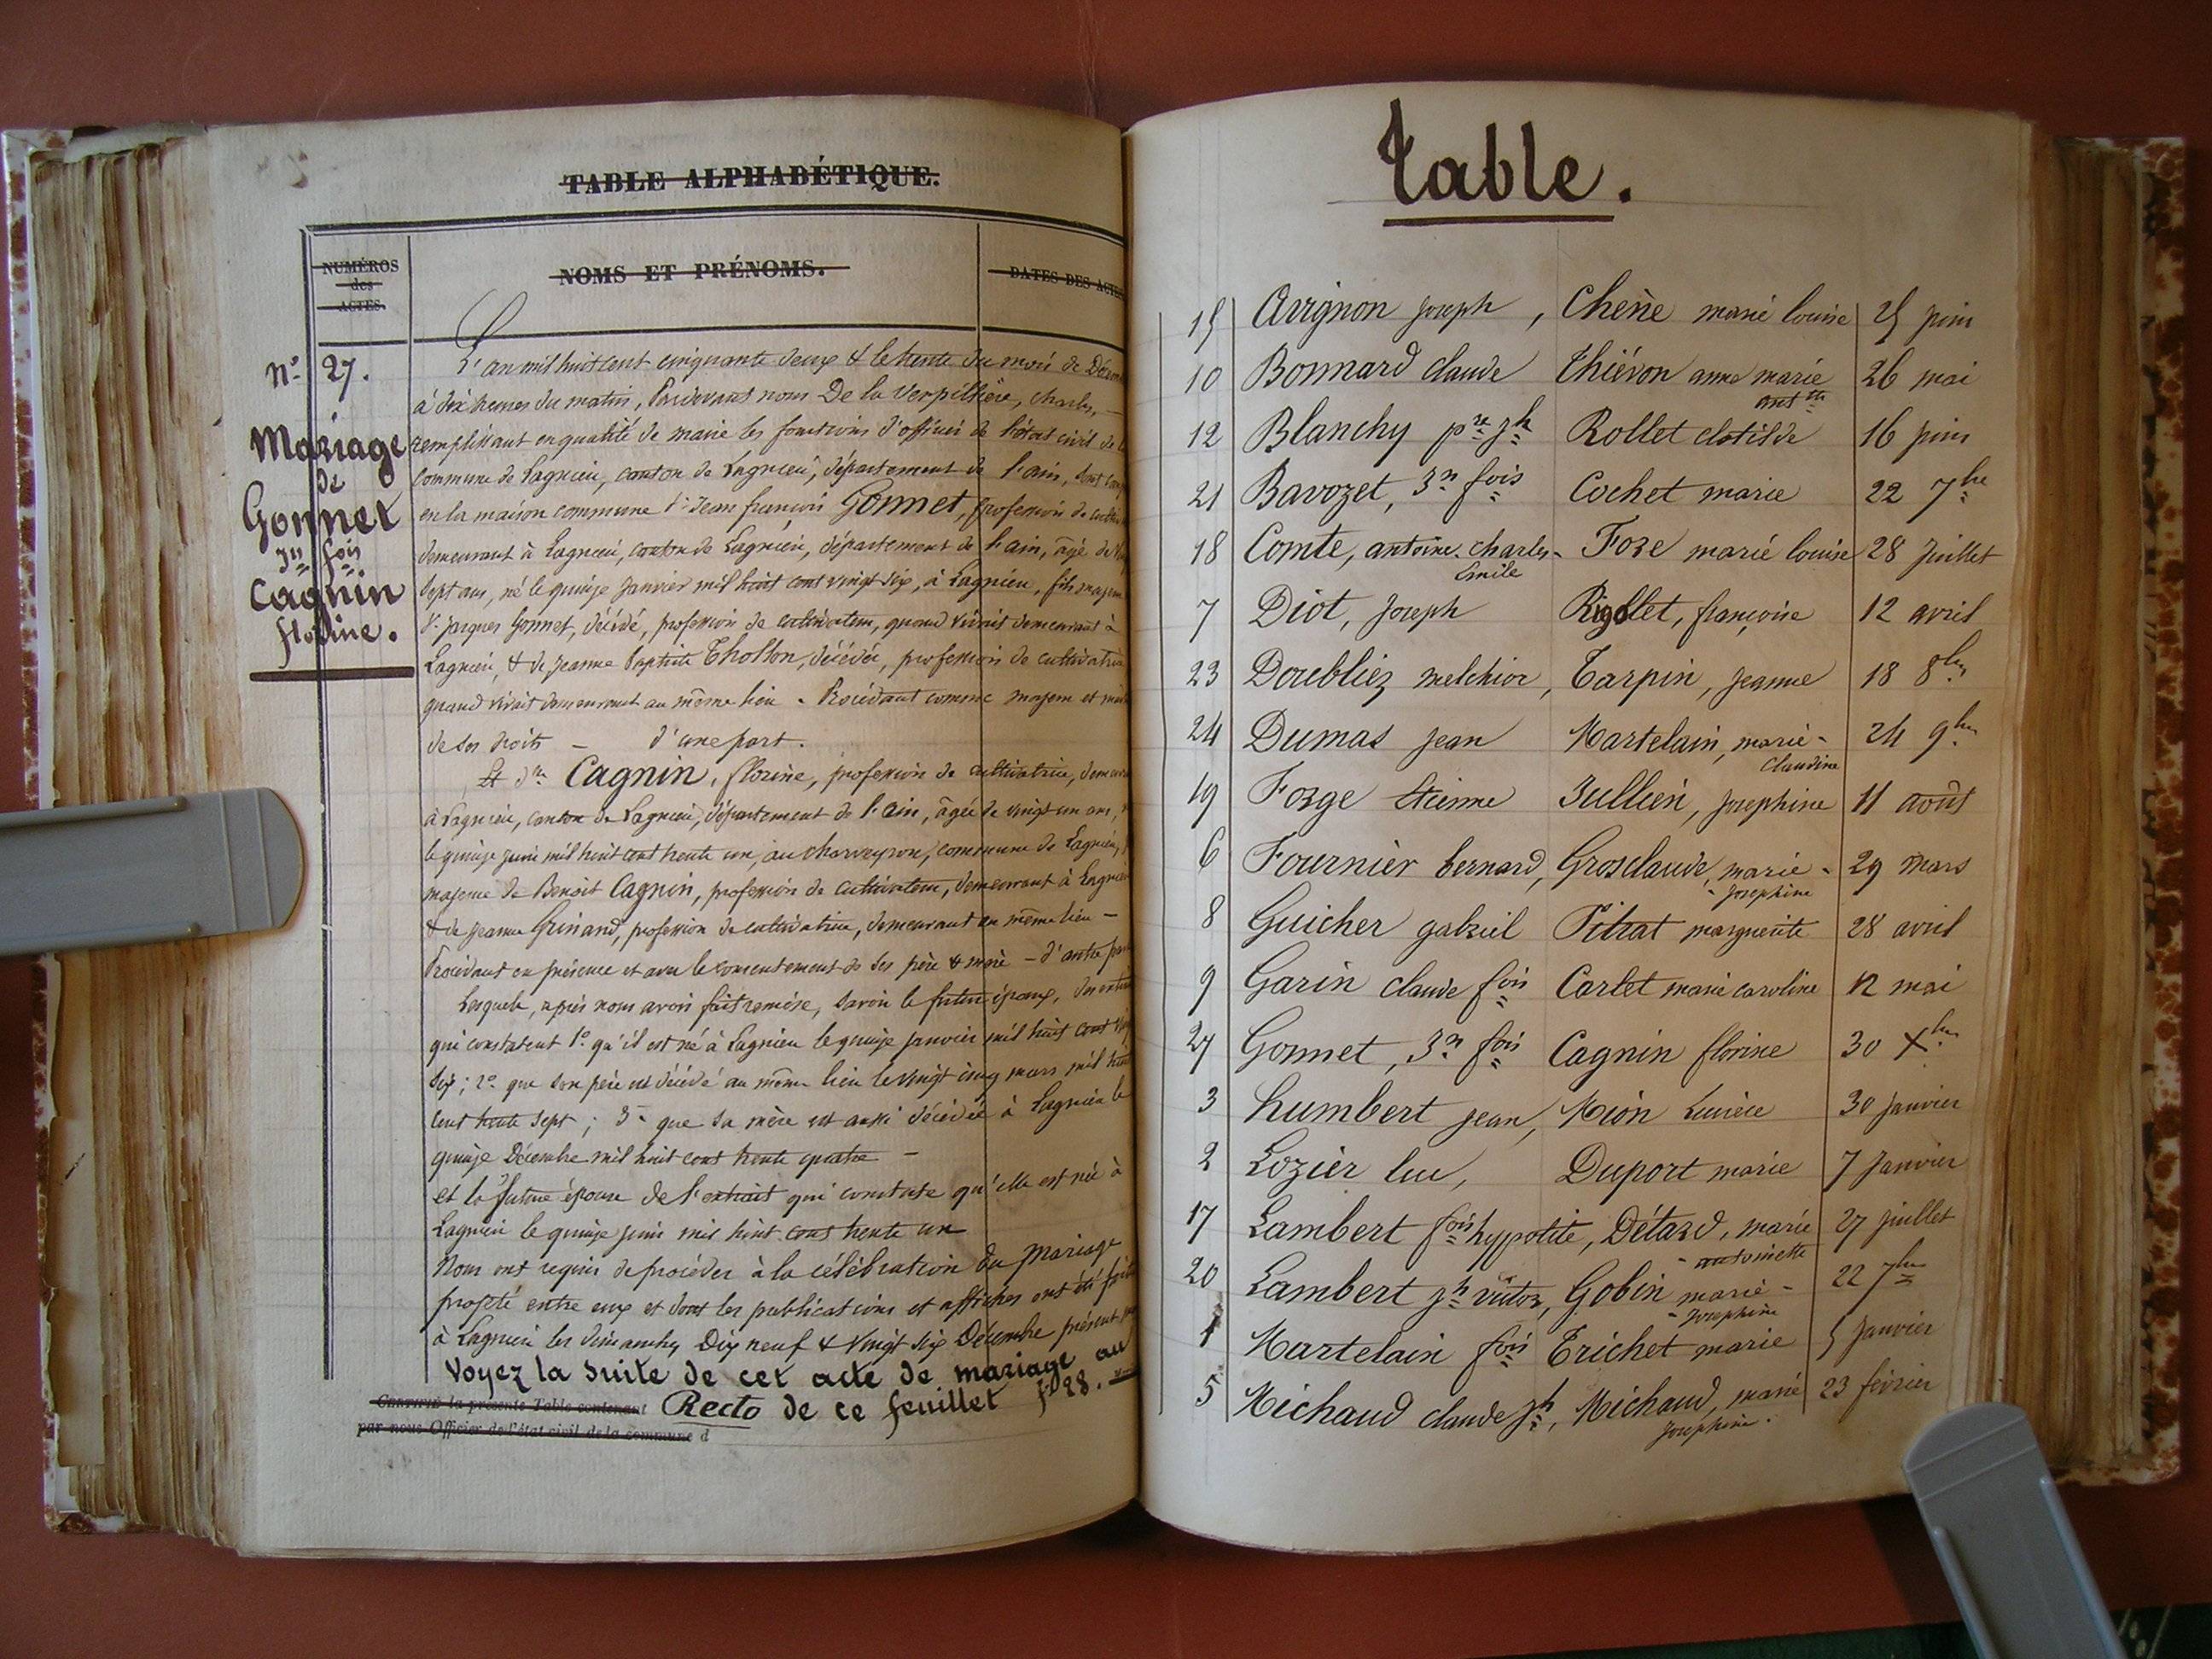 TABLE ALPHABÉTIQUE.
NUMÉROS
des
ACTES.
NOMS ET PRÉNOMS.
DATES DES ACTES
N° 27.
Mariage
de
Gonnet
Jn fois
Cagnin
florine.
L'an mil huit cent cinquante deux & le trente du mois de Décem
à dix heures du matin, Pardevant nous De la Verpillière, Charles, —
remplissant en qualité de maire les fonctions d'officier de l'état civil de la
commune de Lagnieu, canton de Lagnieu, département de l'ain, sont comp
en la maison commune Sr Jean françois Gonnet, profession de cultiv
demeurant à Lagnieu, canton de Lagnieu, département de l'ain, âgé de Vin
sept ans, né le quinze Janvier mil huit cent vingt six, à Lagnieu, fils majeur
Sr jacques Gonnet, décédé, profession de cultivateur, quand vivait demeurant à
Lagnieu, & de jeanne baptiste Thollon, décédée, profession de cultivatrice
quand vivait demeurant au même lieu. Procédant comme majeur et mait
de ses droits — d'une part.
Et Dlle Cagnin, florine, profession de cultivatrice, demeura
à Lagnieu, canton de Lagnieu, département de l'ain, âgée de vingt un ans,
le quinze juin mil huit cent trente un, au charveyron, commune de Lagnieu,
majeure de Benoit Cagnin, profession de cultivateur, demeurant à Lagnieu
& de jeanne Grinand, profession de cultivatrice, demeurant au même lieu —
Procédant en présence et avec le consentement de ses père & mère — d'autre part
Lesquels, après nous avoir fait remise, savoir le futur époux, des extraits
qui constatent 1° qu'il est né à Lagnieu le quinze janvier mil huit cent vingt
six; 2° que son père est décédé au même lieu le vingt cinq mars mil huit
cent trente sept; 3° que sa mère est aussi décédée à Lagnieu le
quinze Décembre mil huit cent trente quatre —
et la future épouse de l'extrait qui constate qu'elle est née à
Lagnieu le quinze juin mil huit cent trente un
Nous ont requis de procéder à la célébration du mariage
projeté entre eux et dont les publications et affiches ont été faites
à Lagnieu les dimanches Dix neuf & Vingt six Décembre présent
Voyez la suite de cet acte de mariage au
Recto de ce feuillet f° 28.
CERTIFIÉ la présente Table contenant
par nous Officier de l'état civil de la commune d
Table.
15 Avignon joseph, Chêne marie louise 25 juin
10 Bonnard claude Thiévon anne marie 26 mai
antte
12 Blanchy pre jh Rollet clotilde 16 juin
21 Bavozet, Jn fois Cochet marie 22 7bre
18 Comte, antoine charles- Foze marie louise 28 Juillet
Emile
7 Diot, Joseph Rigollet, françoise 12 avril
23 Doubliez melchior, Tarpin, jeanne 18 8bre
24 Dumas jean Martelain, marie- 24 9bre
Claudine
19 Forge Etienne Jullien, josephine 11 août
6 Fournier bernard, Grosclaude, marie- 29 mars
- Josephine
8 Guicher gabriel Pitrat marguerite 28 avril
9 Garin claude fois Carlet marie caroline 12 mai
27 Gonnet, Jn fois Cagnin florine 30 Xbre
3 humbert jean, Mion Lucrèce 30 janvier
2 Lozier luc, Duport marie 7 Janvier
17 Lambert fois hyppolite, Détard, marie 27 juillet
- antoinette
20 Lambert jh victor, Gobin marie- 22 7bre
- Josephine
1 Martelain fois Trichet marie 5 Janvier
5 Michaud claude jh, Michaud, marie 23 février
Josephine.